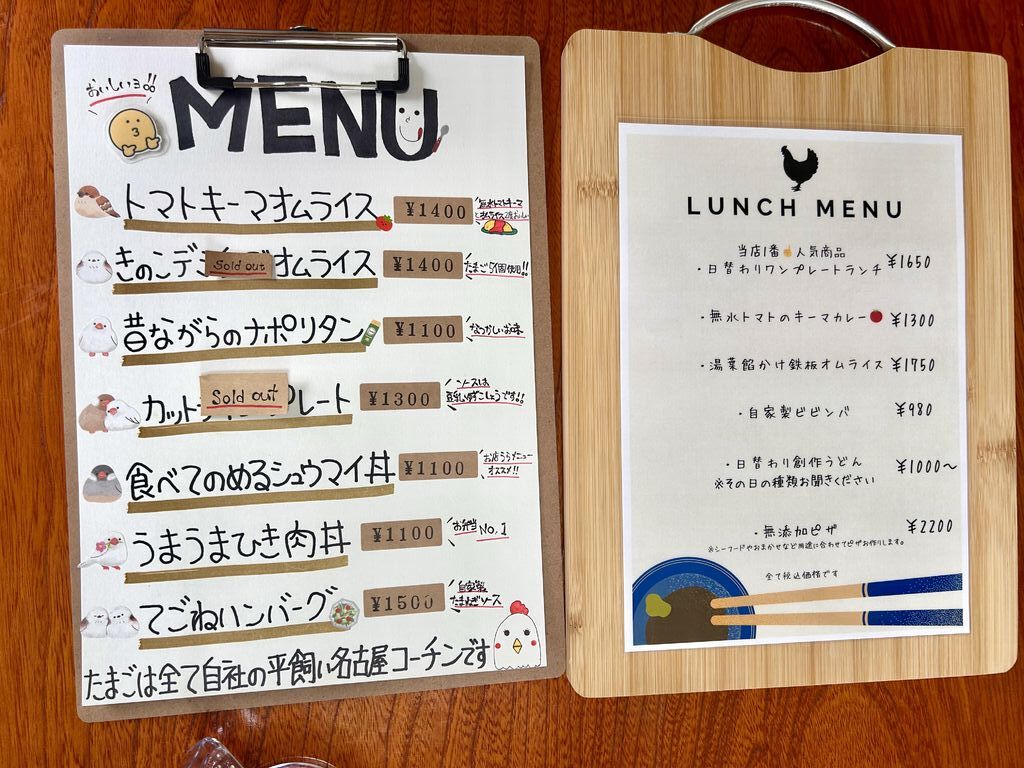 おいしいヨ!!
MENU
トマトキーマオムライス ¥1400
無水トマトキーマ
きのこデ Sold out オムライス ¥1400
たまご5個使用!!
昔ながらのナポリタン ¥1100
なつかしいお味
カット Sold out プレート ¥1300
ソースは
ゆずこしょうです!!
食べてのめるシュウマイ丼 ¥1100
お店うらメニュー
オススメ!!
うまうまひき肉丼 ¥1100
お弁当 No.1
てごねハンバーグ ¥1500
自家製
たまねぎソース
たまごは全て自社の平飼い名古屋コーチンです
LUNCH MENU
当店1番人気商品
・日替わりワンプレートランチ ¥1650
・無水トマトのキーマカレー ¥1300
・湯葉餡かけ鉄板オムライス ¥1750
・自家製ビビンバ ¥980
・日替わり創作うどん ¥1000～
※その日の種類お聞きください
・無添加ピザ ¥2200
※シーフードやおまかせなど用途に合わせてピザお作りします。
全て税込価格です